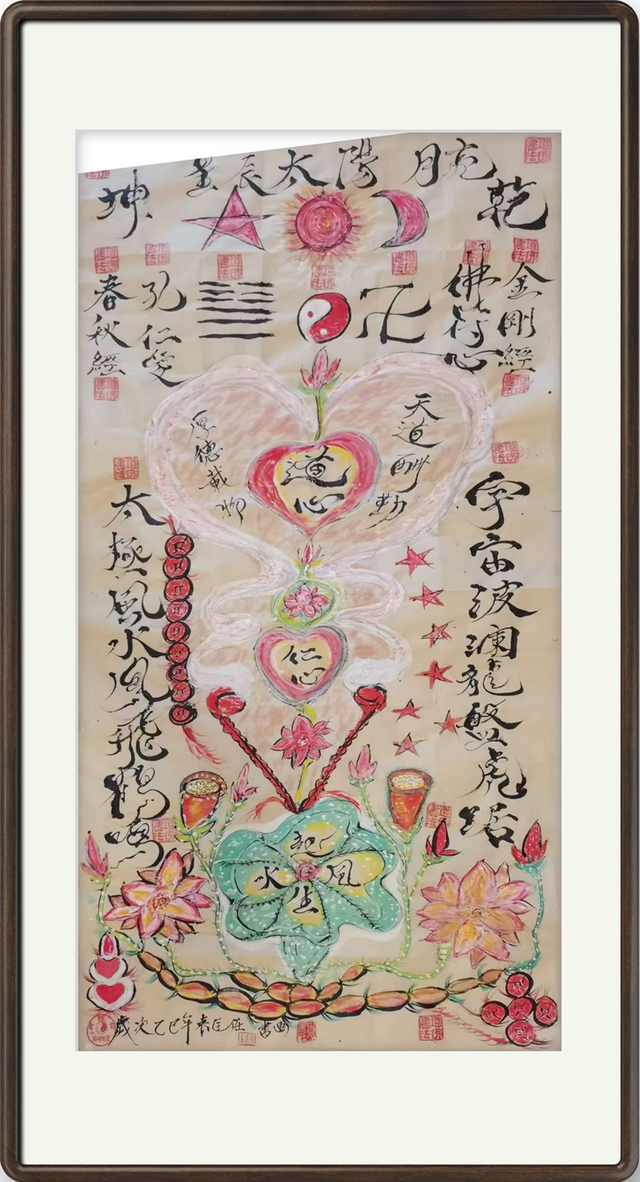 坤
星辰太陽月亮
乾
金剛經
佛 心
卍
孔仁愛
春秋經
天道酬勤
厚德載物
道心
仁心
宇宙波瀾龍盤虎踞
太極風水凤飛鶴鳴
風生水起
歲次乙巳年 書画